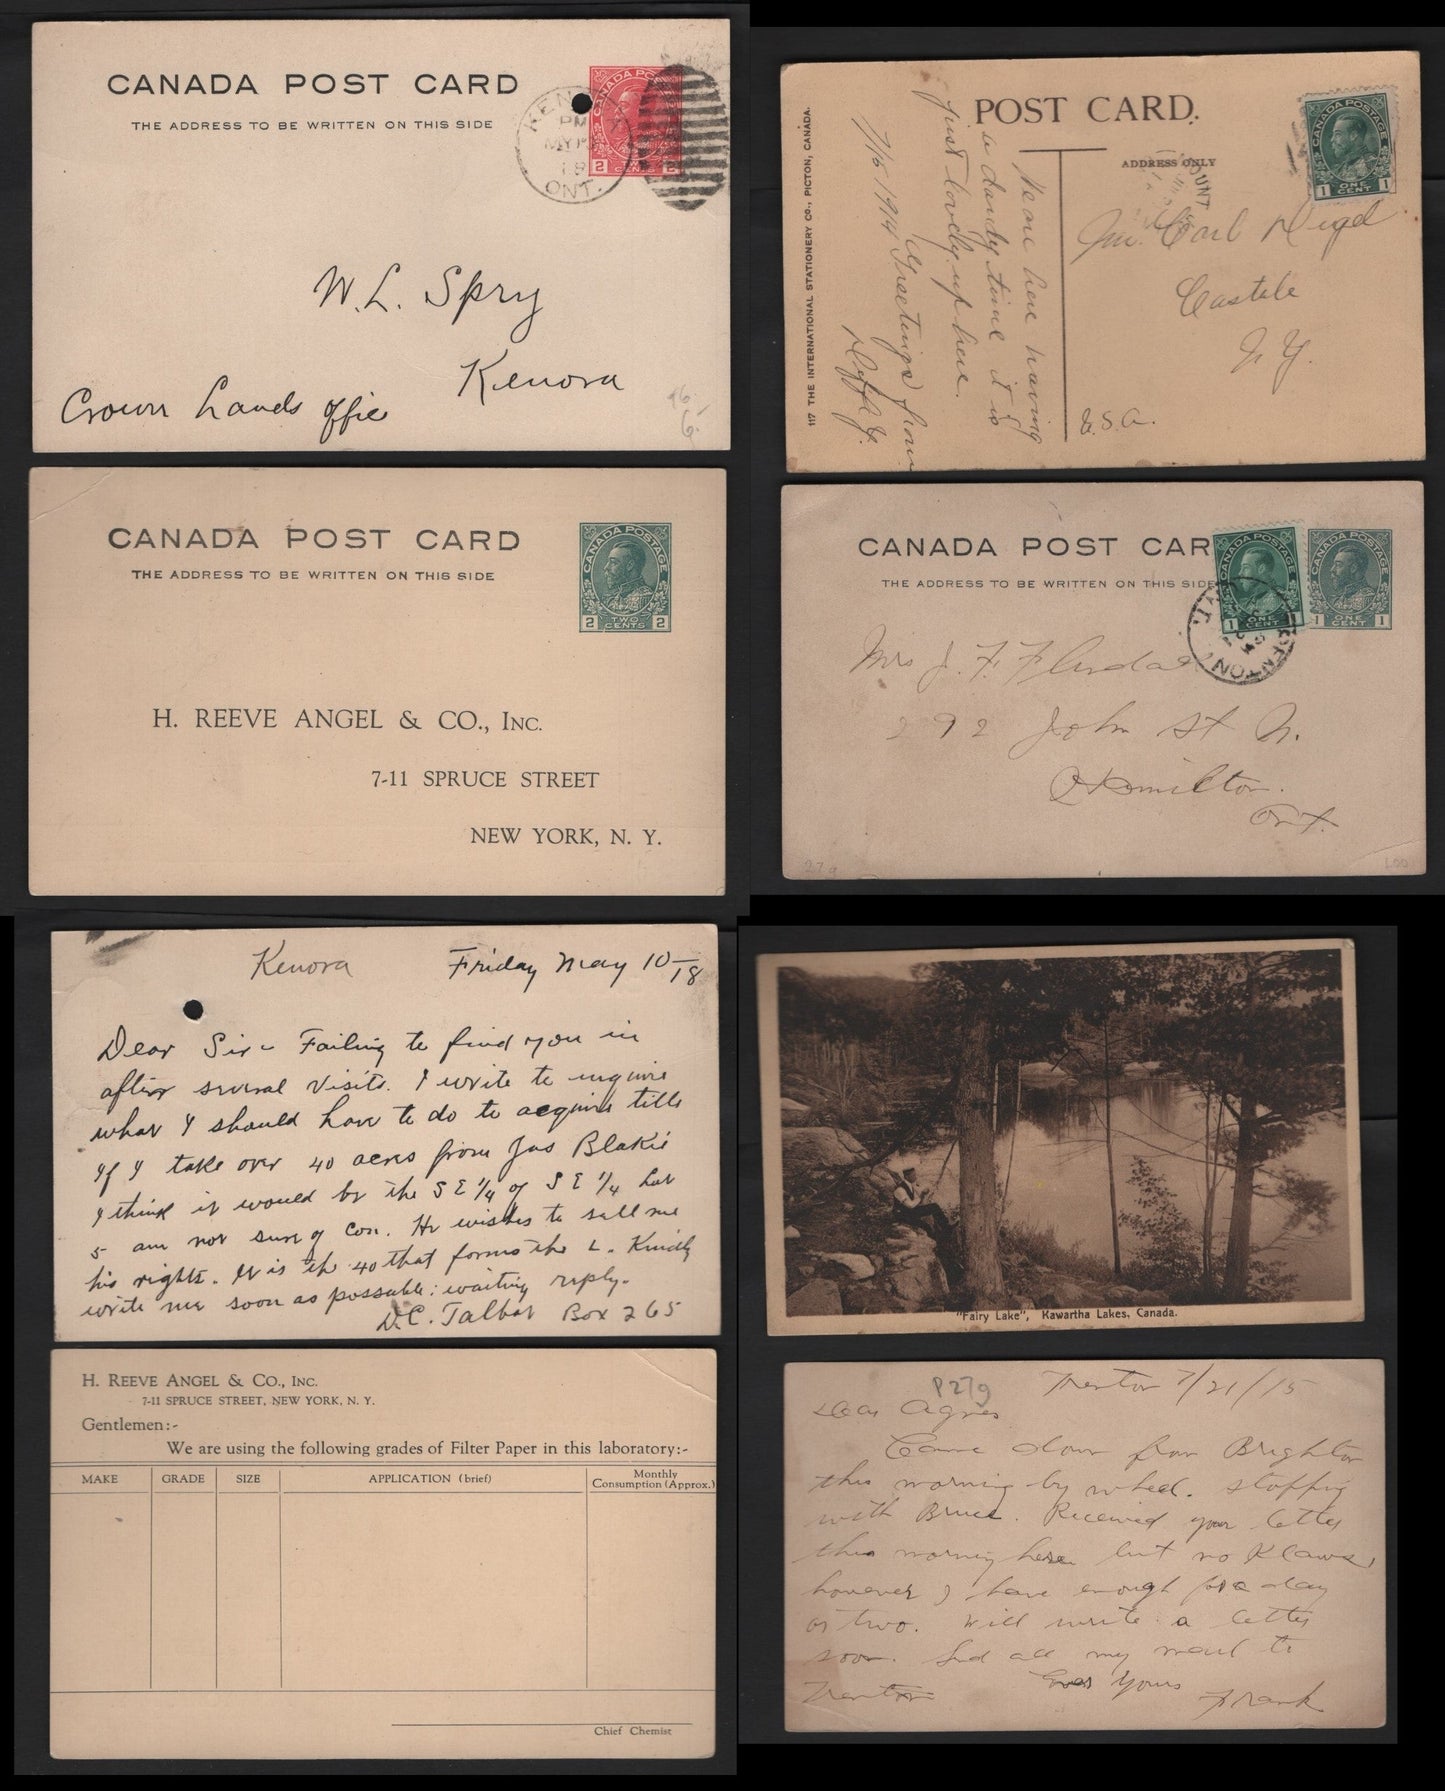 CANADA POST CARD
THE ADDRESS TO BE WRITTEN ON THIS SIDE
CANADA POSTAGE
2 TWO CENTS 2
KENORA
PM
MY
18
ONT.
W. L. Spry
Kenora
Crown Lands Office
96
6.-
POST CARD.
ADDRESS ONLY
CANADA POSTAGE
1 ONE CENT 1
OUNT
117 THE INTERNATIONAL STATIONERY CO., PICTON, CANADA.
7/16 1914 Greetings from
Just lovely up here.
a dandy time it is
We are here having
Carl
Castile
N. Y.
U.S.A.
CANADA POST CARD
THE ADDRESS TO BE WRITTEN ON THIS SIDE
CANADA POSTAGE
2 TWO CENTS 2
H. REEVE ANGEL & CO., INC.
7-11 SPRUCE STREET
NEW YORK, N. Y.
CANADA POST CAR
THE ADDRESS TO BE WRITTEN ON THIS SIDE
CANADA POSTAGE
1 ONE CENT 1
CANADA POSTAGE
1 ONE CENT 1
ONT.
Mrs J. F.
292 John St N.
Hamilton.
Ont.
27g
1.00
Kenora Friday May 10/18
Dear Sir - Failing to find you in
after several visits. I write to inquire
what I should have to do to acquire title
if I take over 40 acres from Jas Blakie
I think it would be the S E 1/4 of S E 1/4 Lot
5 am not sure of Con. He wishes to sell me
his rights. It is the 40 that forms the L. Kindly
write me soon as possible: waiting reply.
D.C. Talbot Box 265
"Fairy Lake", Kawartha Lakes, Canada.
H. REEVE ANGEL & CO., INC.
7-11 SPRUCE STREET, NEW YORK, N. Y.
Gentlemen:-
We are using the following grades of Filter Paper in this laboratory:-
MAKE GRADE SIZE APPLICATION (brief) Monthly Consumption (Approx.)
Chief Chemist
P27g
Trenton 7/21/15
Dear Agnes
Came down from Brighton
this morning by wheel. stopping
with Bruce. Received your letter
this morning here but no
however I have enough for a day
or two. Will write a letter
soon. Send all my mail to
Trenton Yours
Frank